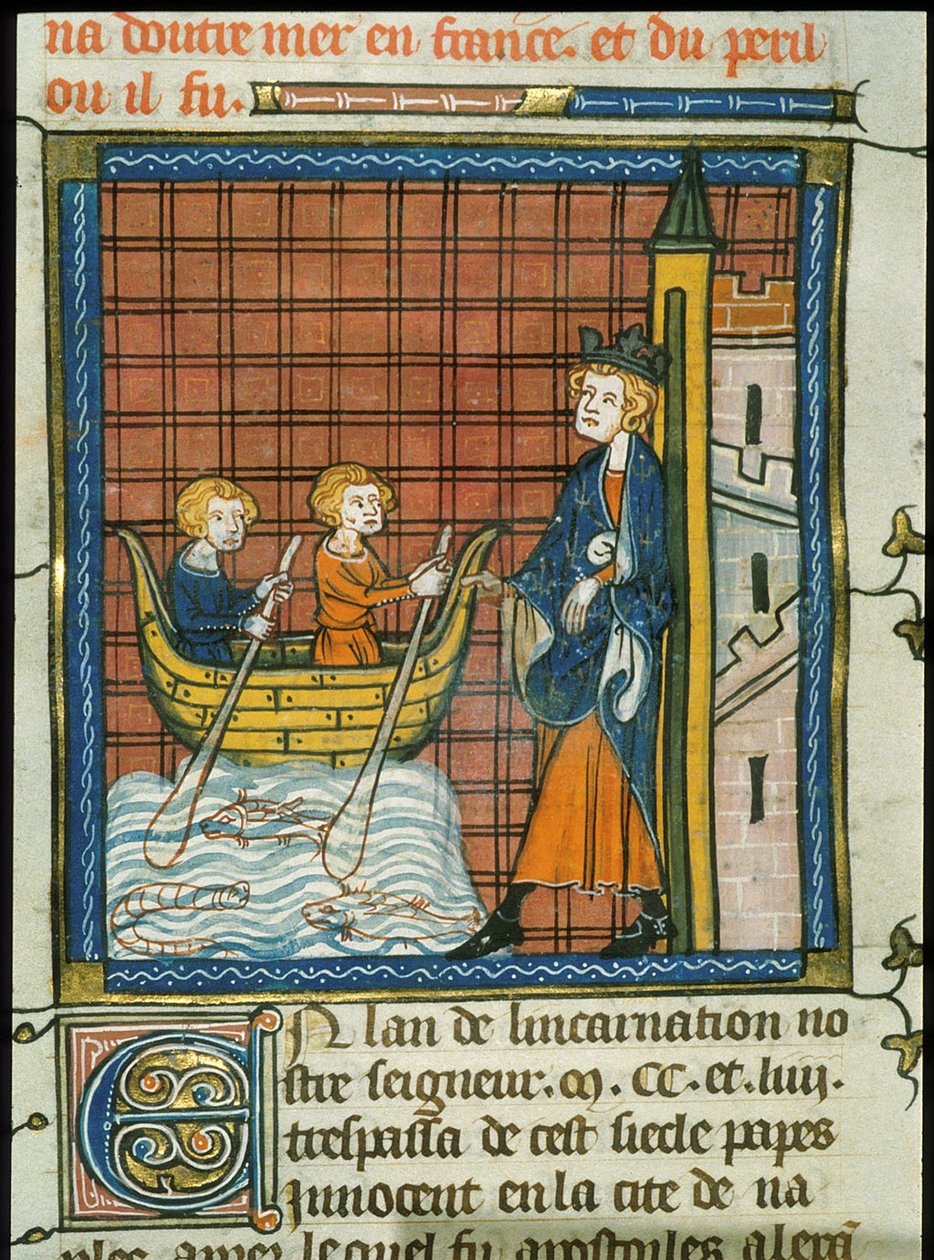 na doutre mer en france. et du peril
ou il fu.
En lan de lincarnation no
stre seigneur. m. cc. et. liiii.
trespassa de cest siecle papes
Innocent en la cite de na
ples. apres lequel fu apostoiles alexā